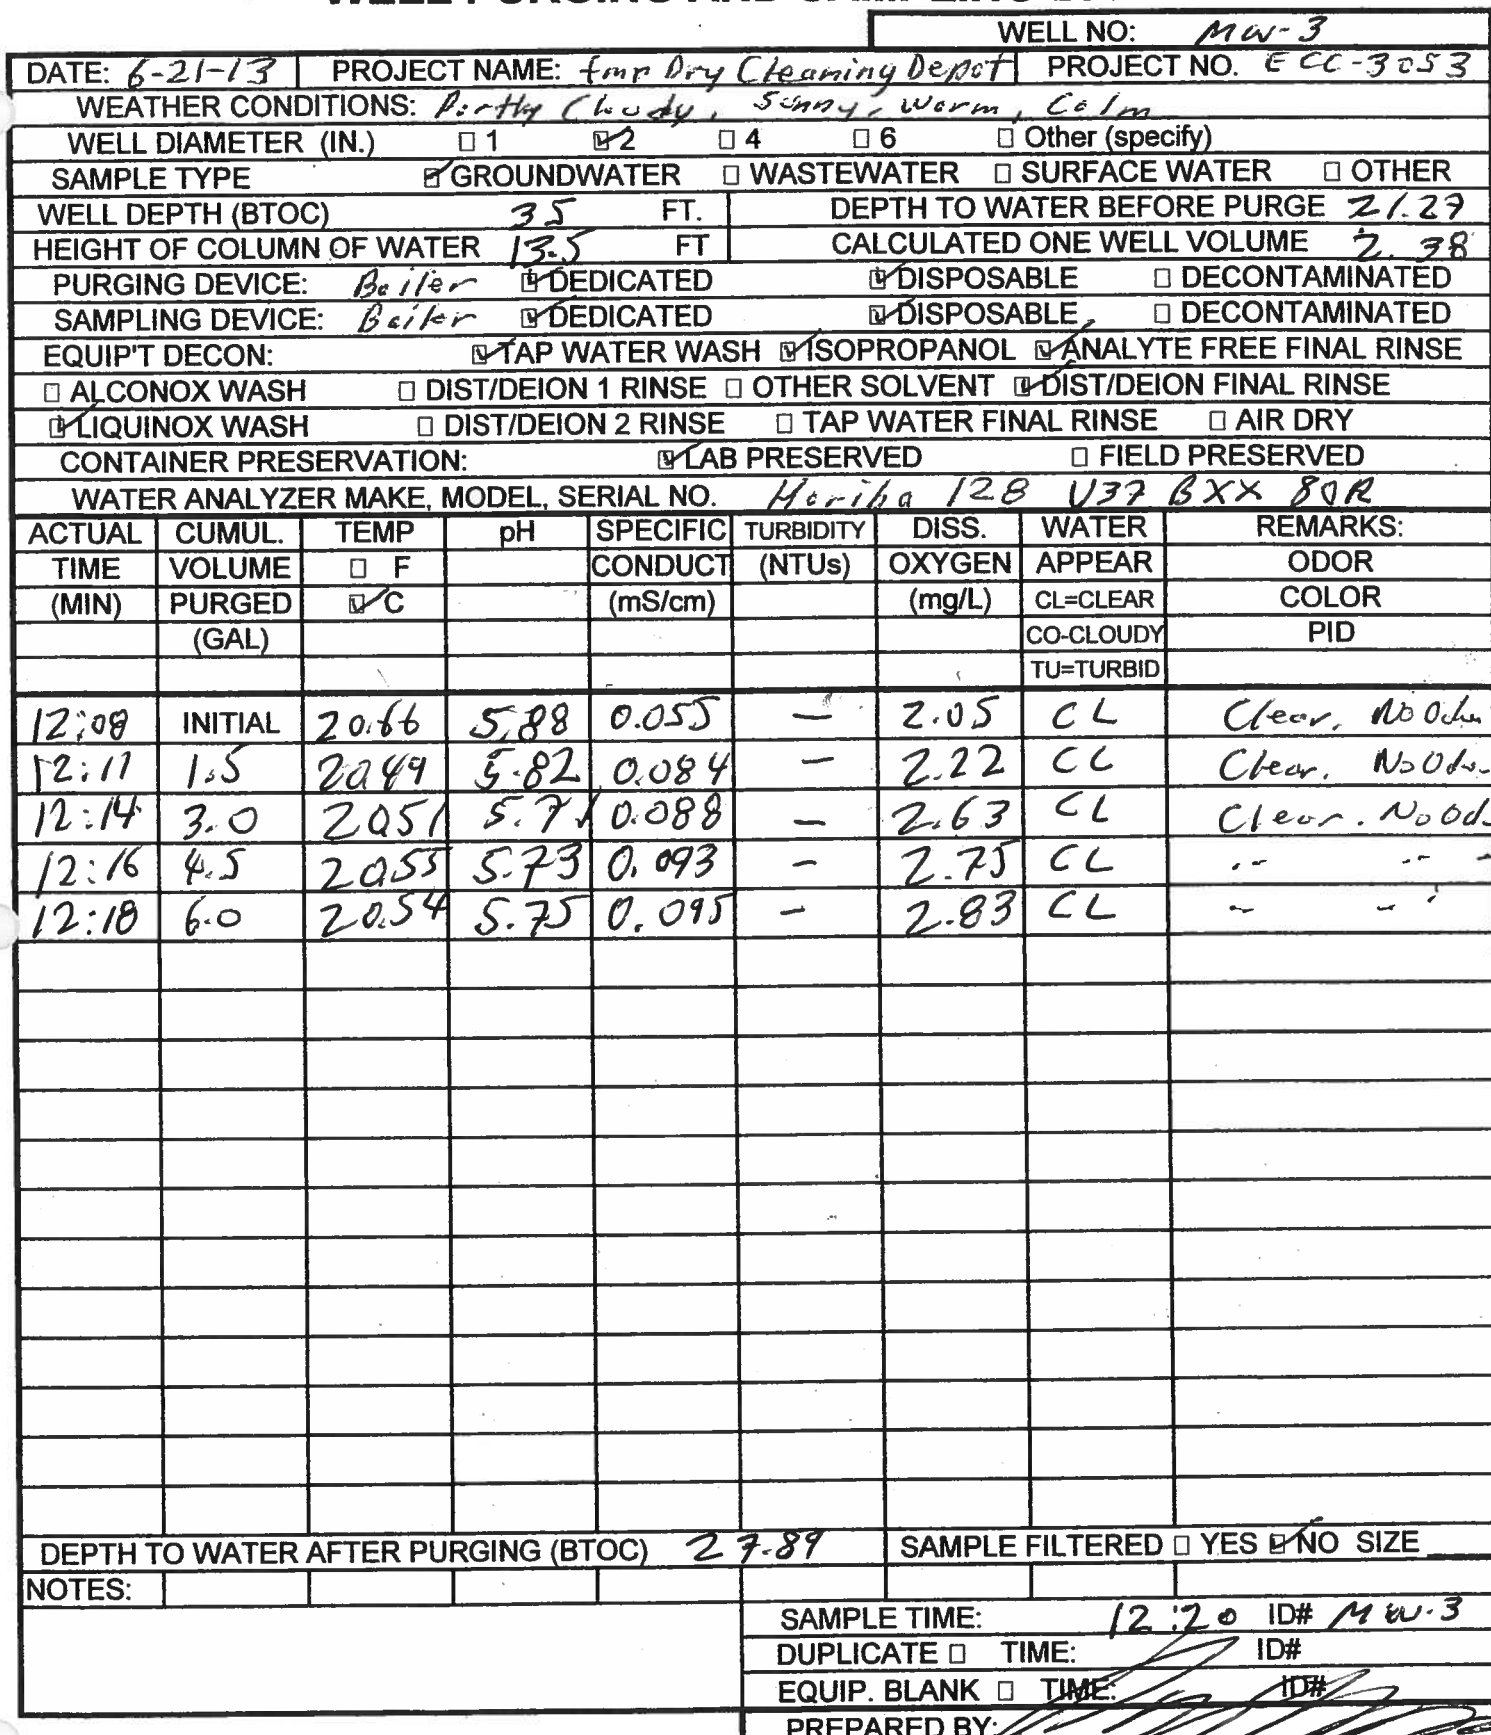 WELL PURGING AND SAMPLING
WELL NO: MW-3
DATE: 6-21-13 PROJECT NAME: fmr Dry Cleaning Depot PROJECT NO. ECC-3053
WEATHER CONDITIONS: Partly Cloudy, Sunny, Warm, Calm
WELL DIAMETER (IN.) ☐ 1 ☑ 2 ☐ 4 ☐ 6 ☐ Other (specify)
SAMPLE TYPE ☑ GROUNDWATER ☐ WASTEWATER ☐ SURFACE WATER ☐ OTHER
WELL DEPTH (BTOC) 35 FT. DEPTH TO WATER BEFORE PURGE 21.27
HEIGHT OF COLUMN OF WATER 13.5 FT CALCULATED ONE WELL VOLUME 2.38
PURGING DEVICE: Bailer ☑ DEDICATED ☑ DISPOSABLE ☐ DECONTAMINATED
SAMPLING DEVICE: Bailer ☑ DEDICATED ☑ DISPOSABLE ☐ DECONTAMINATED
EQUIP'T DECON: ☑ TAP WATER WASH ☑ ISOPROPANOL ☑ ANALYTE FREE FINAL RINSE
☐ ALCONOX WASH ☐ DIST/DEION 1 RINSE ☐ OTHER SOLVENT ☑ DIST/DEION FINAL RINSE
☑ LIQUINOX WASH ☐ DIST/DEION 2 RINSE ☐ TAP WATER FINAL RINSE ☐ AIR DRY
CONTAINER PRESERVATION: ☑ LAB PRESERVED ☐ FIELD PRESERVED
WATER ANALYZER MAKE, MODEL, SERIAL NO. Horiba 128 U37 BXX 80R
ACTUAL CUMUL. TEMP pH SPECIFIC TURBIDITY DISS. WATER REMARKS:
TIME VOLUME ☐ F CONDUCT (NTUs) OXYGEN APPEAR ODOR
(MIN) PURGED ☑ C (mS/cm) (mg/L) CL=CLEAR COLOR
(GAL) CO-CLOUDY PID
TU=TURBID
12:08 INITIAL 20.66 5.88 0.055 — 2.05 CL Clear, No Odor
12:11 1.5 20.49 5.82 0.084 — 2.22 CL Clear, No Odor
12:14 3.0 20.51 5.71 0.088 — 2.63 CL Clear. No Odor
12:16 4.5 20.55 5.73 0.093 — 2.75 CL " " "
12:18 6.0 20.54 5.75 0.095 — 2.83 CL " " "
DEPTH TO WATER AFTER PURGING (BTOC) 27.89 SAMPLE FILTERED ☐ YES ☑ NO SIZE ___
NOTES:
SAMPLE TIME: 12:20 ID# MW-3
DUPLICATE ☐ TIME: ID#
EQUIP. BLANK ☐ TIME: ID#
PREPARED BY: